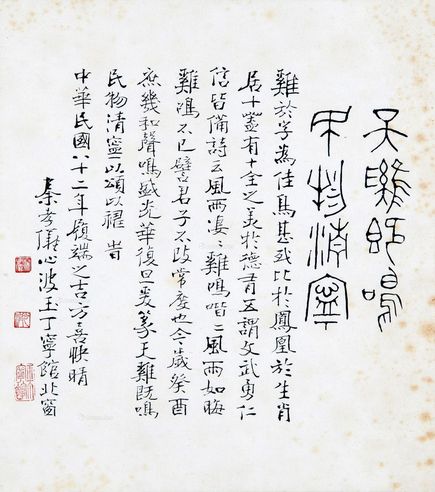 天雞既鳴
民物清寧
雞於字為佳鳥甚或比於鳳凰於生肖
居十蓋有十全之美於德有五謂文武勇仁
信皆備詩云風雨淒〻雞鳴喈〻風雨如晦
雞鳴不已譬君子不改常度也今歲癸酉
庶幾和聲鳴盛光華復旦爰篆天雞既鳴
民物清寧以頌以禱 旹
中華民國八十二年履端之吉方喜快晴
秦孝儀心波玉丁寧館北窗